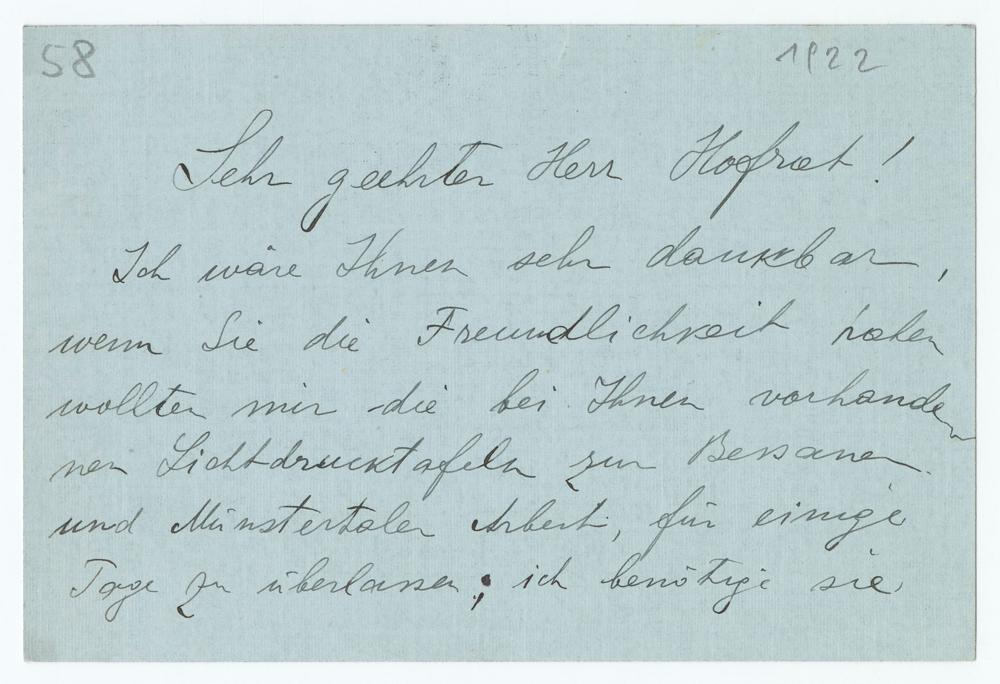 58
1922
Sehr geehrter Herr Hofrat!
Ich wäre Ihnen sehr dankbar,
wenn Sie die Freundlichkeit haben
wollten mir die bei Ihnen vorhande
nen Lichtdrucktafeln zur
und Münstertaler Arbeit, für einige
Tage zu überlassen; ich benötige sie